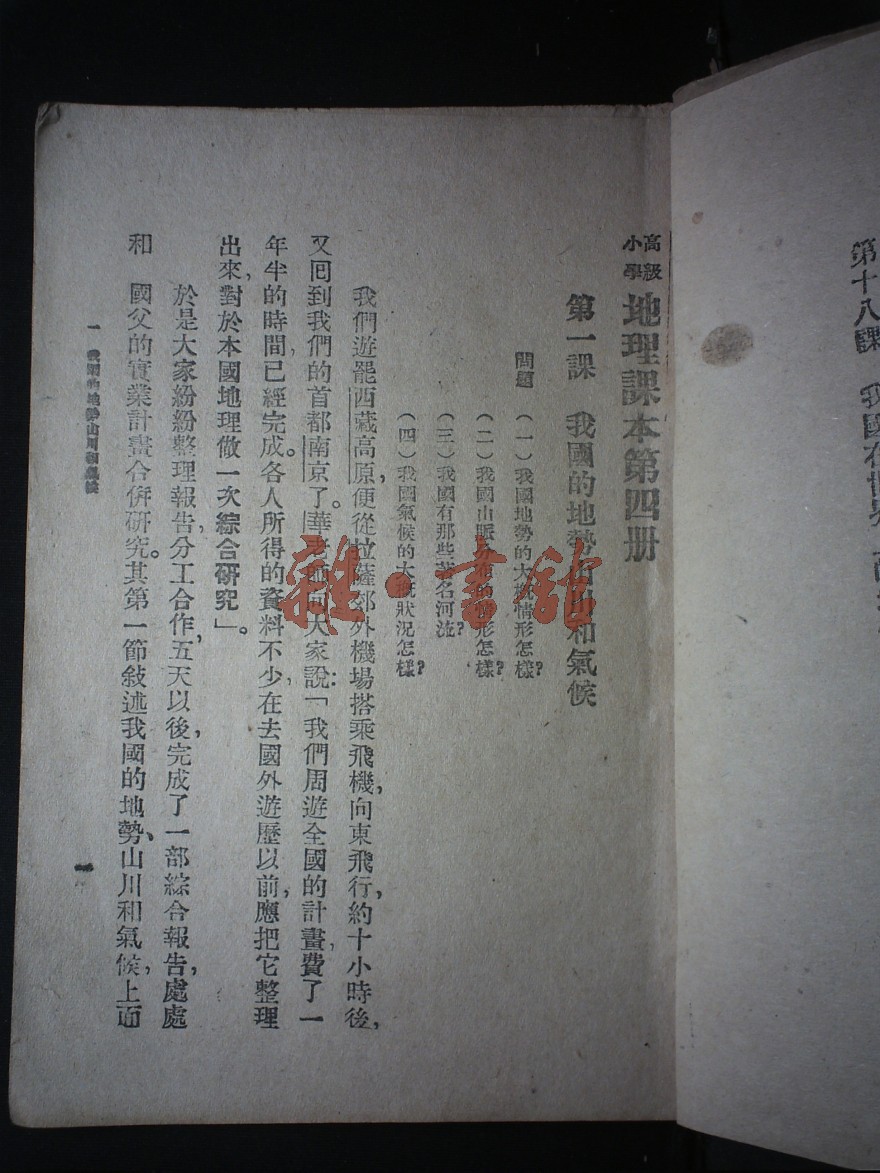 高級小學 地理課本第四册
第一課 我國的地勢山川和氣候
問題 (一)我國地勢的大概情形怎樣?
(二)我國山脈分布的情形怎樣?
(三)我國有那些著名河流?
(四)我國氣候的大概狀況怎樣?
我們遊罷西藏高原,便從拉薩郊外機場搭乘飛機,向東飛行,約十小時後,
又回到我們的首都南京了。華老師向大家說:「我們周遊全國的計畫,費了一
年半的時間,已經完成。各人所得的資料不少,在去國外遊歷以前,應把它整理
出來,對於本國地理做一次綜合研究」。
於是大家紛紛整理報告,分工合作,五天以後,完成了一部綜合報告,處處
和 國父的實業計畫合併研究。其第一節敍述我國的地勢、山川和氣候,上面
一 我國的地勢山川和氣候
一
第十八課 我國在世界
雜·書館